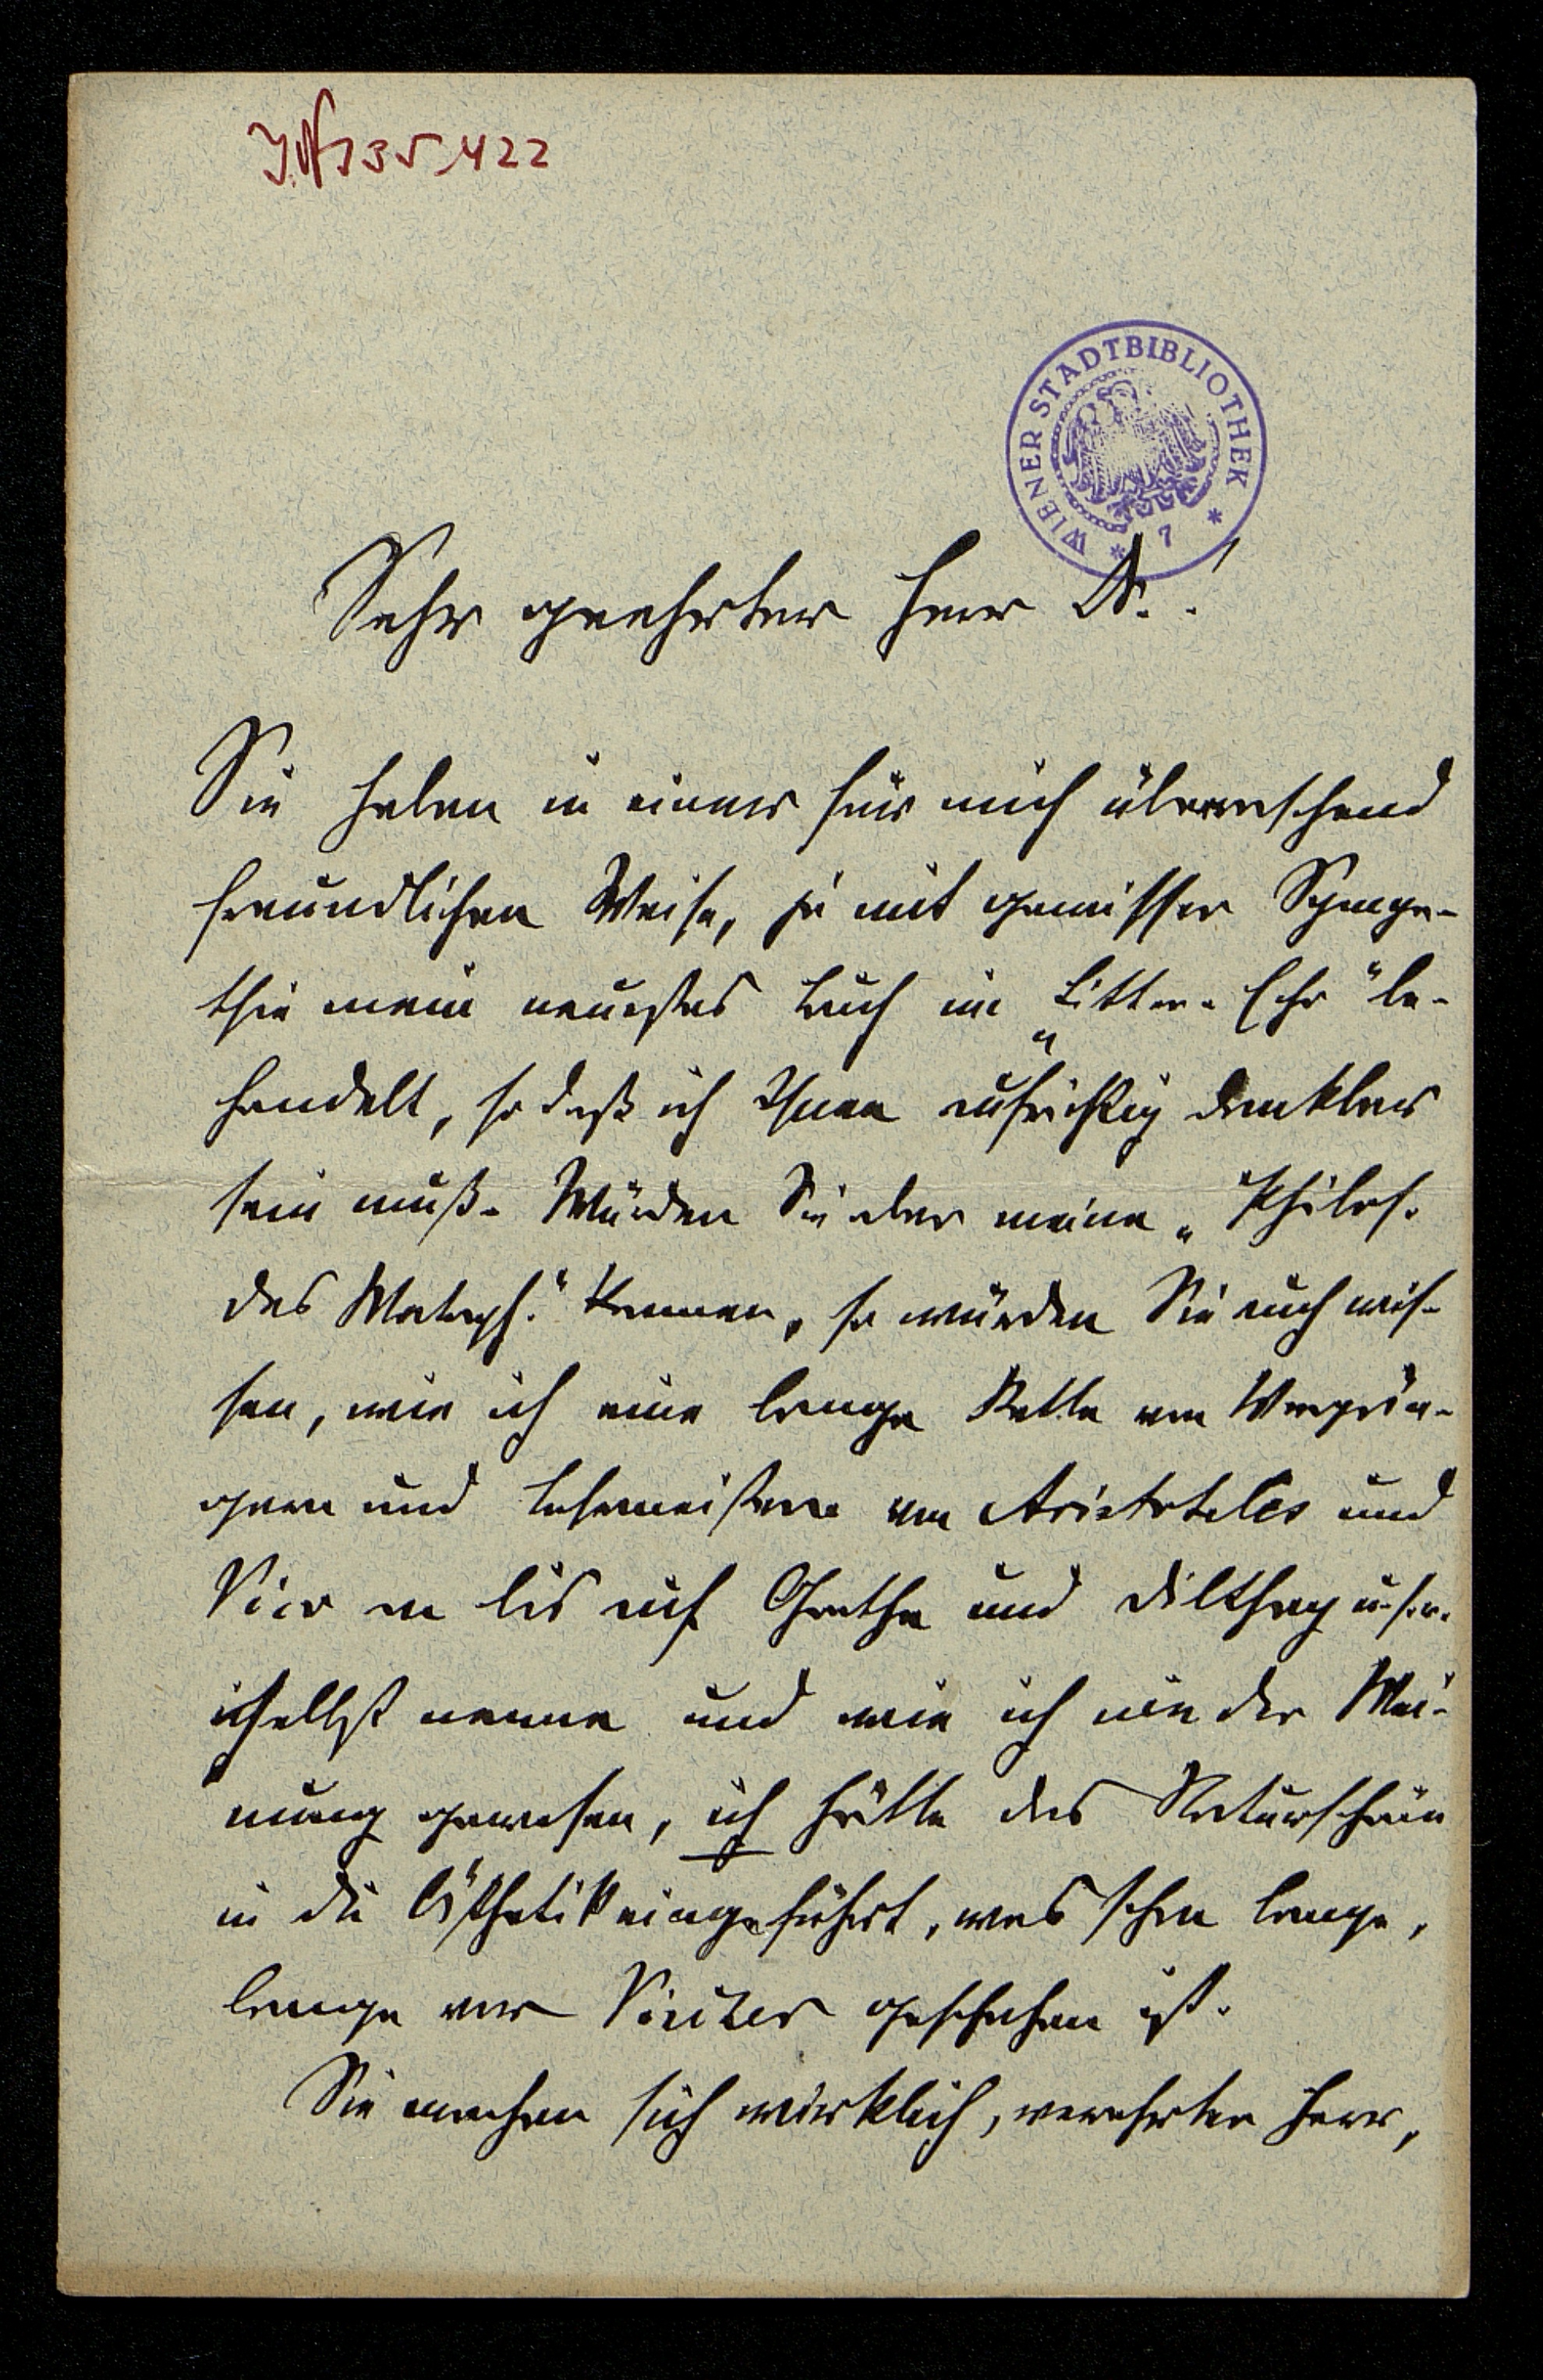 J.N 135.422
WIENER STADTBIBLIOTHEK
* 7 *
Sehr geehrter Herr Dr.!
Sie haben in einer für mich überraschend
freundlichen Weise, ja mit gewisser Sympa-
thie mein neuestes Buch im „Litter. Echo" be-
handelt, so daß ich Ihnen aufrichtig dankbar
sein muß. Würden Sie aber meine „Philos.
des Metaph." kennen, so würden Sie auch wis-
sen, wie ich eine lange Kette von Vorgän-
gern und Lehrmeistern von Aristoteles und
Vico an bis auf Goethe und Dilthey u. s. w.
selbst nenne und wie ich nie der Mei-
nung gewesen, ich hätte das Naturschöne
in die Ästhetik eingeführt, was schon lange,
lange vor Vischer geschehen ist.
Sie machen sich wirklich, verehrter Herr,